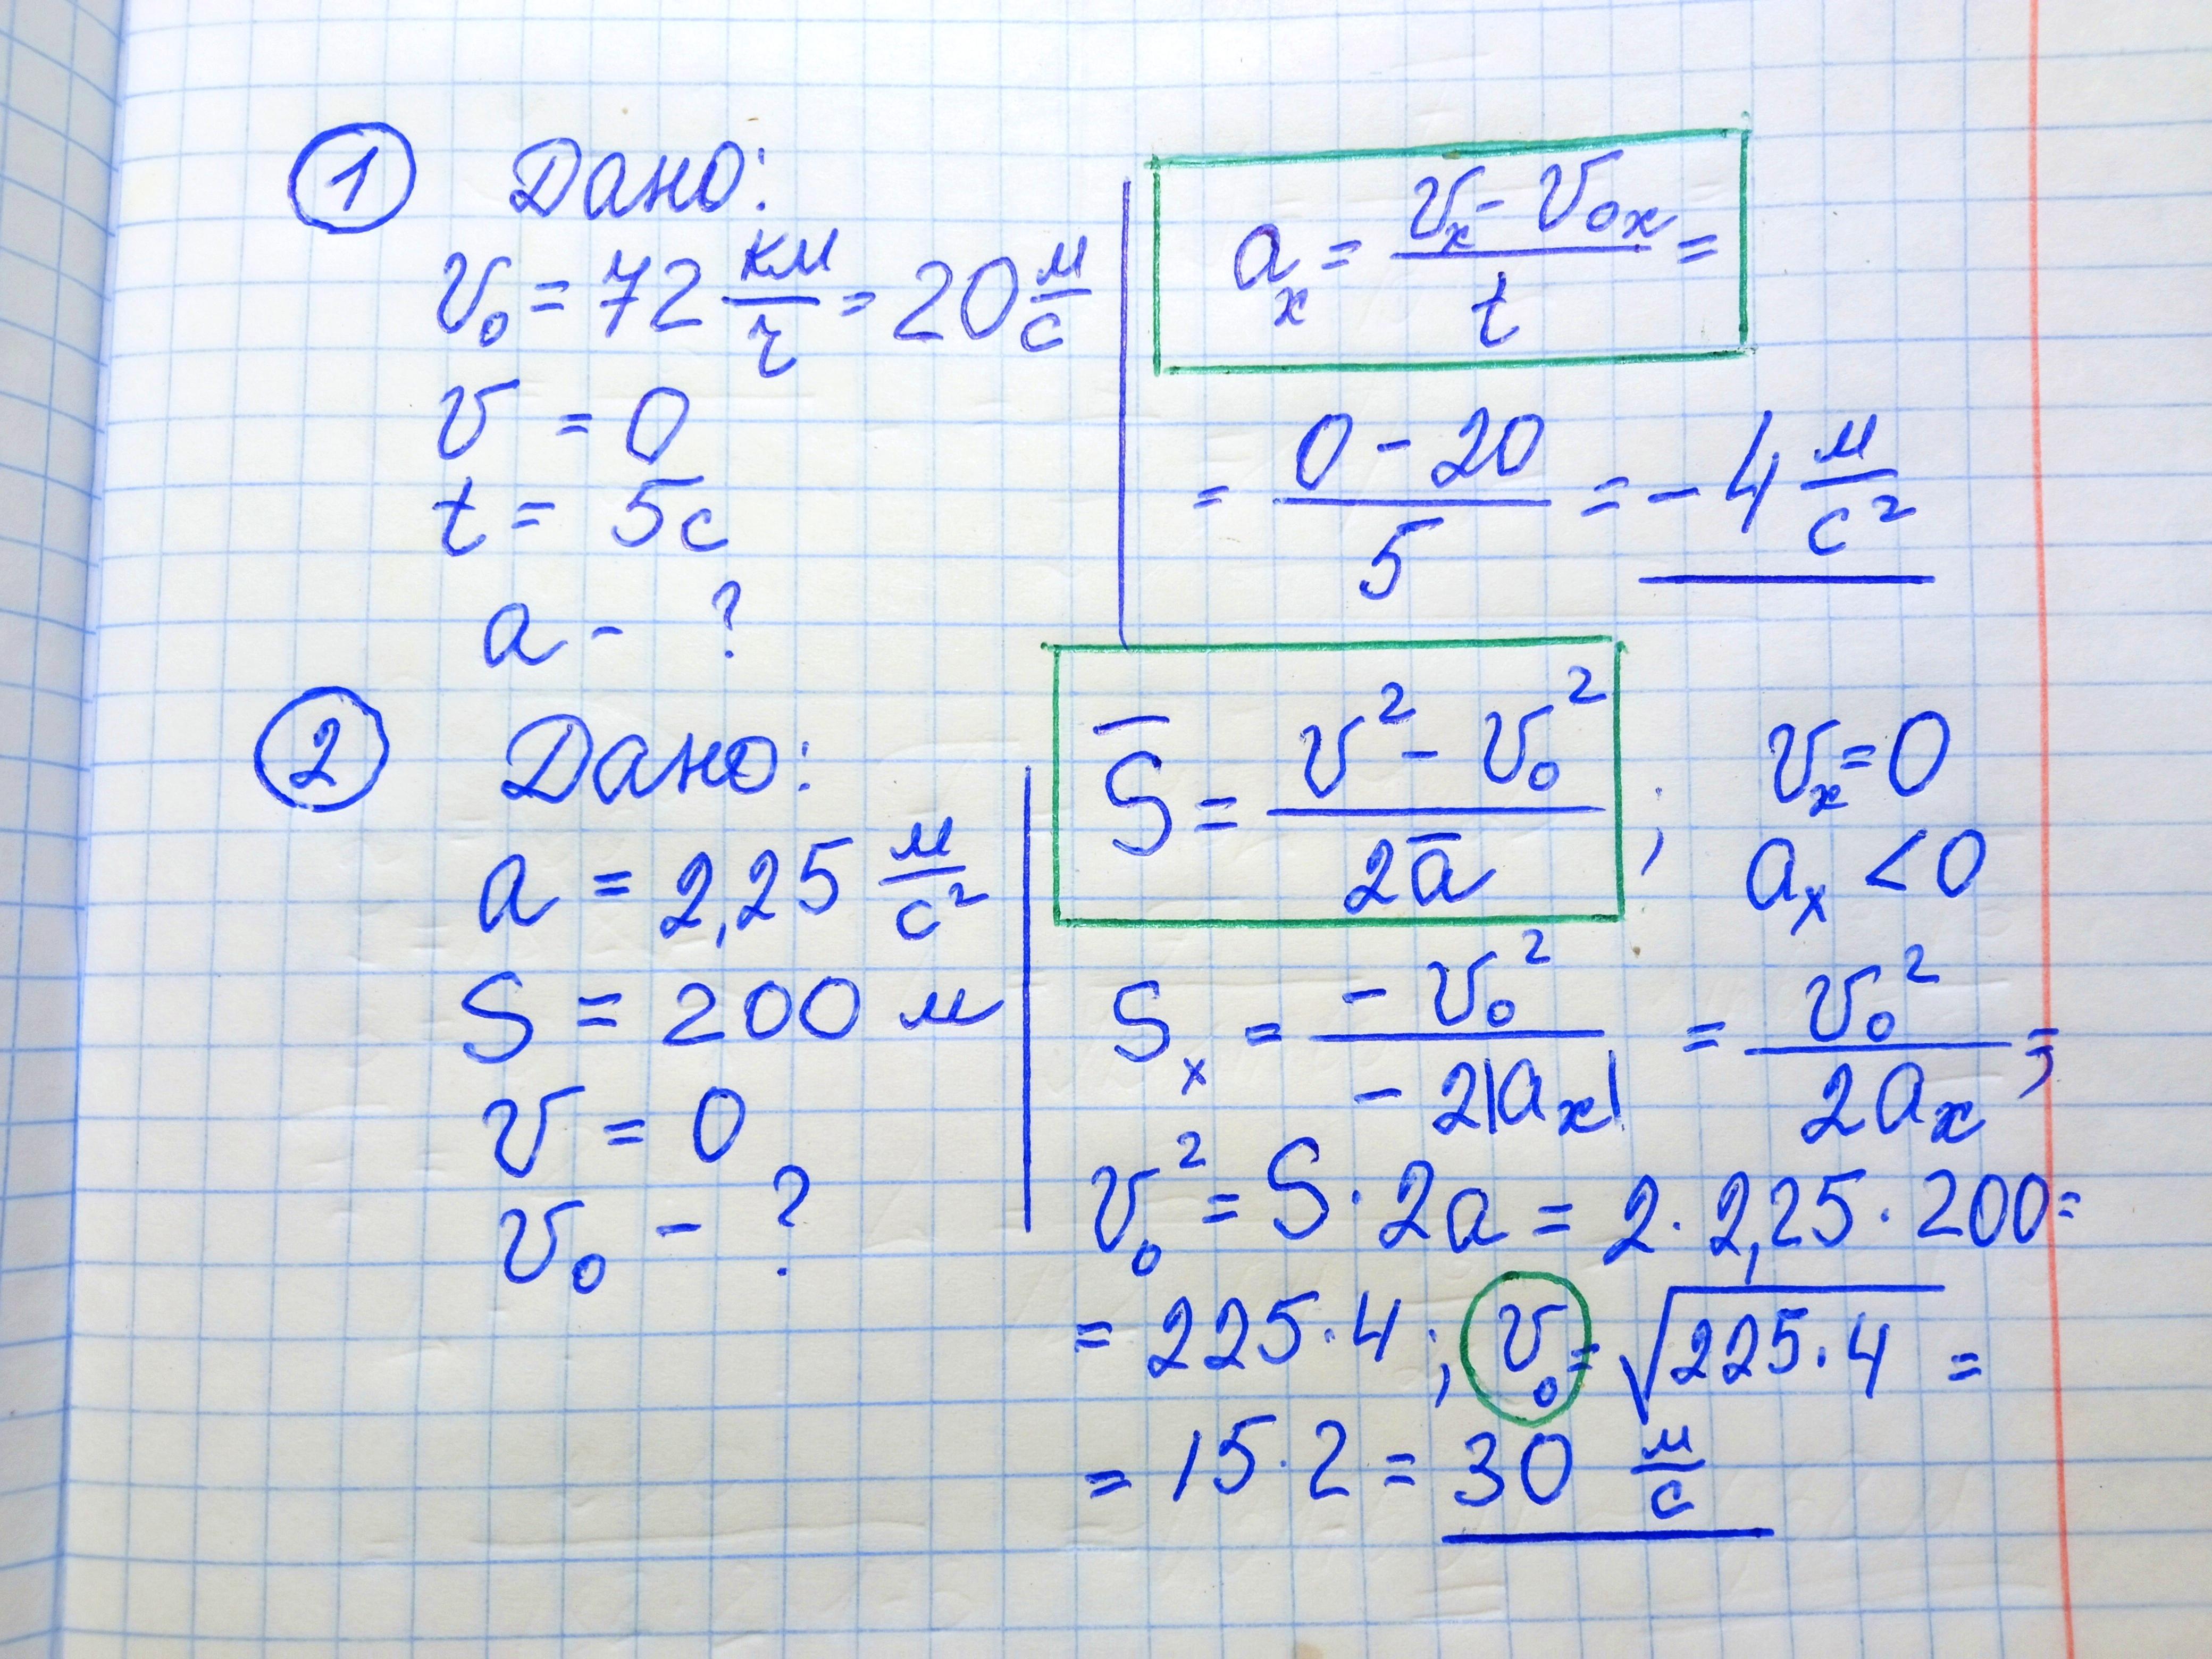 ① Дано:
v₀ = 72 км/ч = 20 м/с
v = 0
t = 5с
a - ?
aₓ = (vₓ - v₀ₓ)/t =
= (0 - 20)/5 = - 4 м/с²
② Дано:
a = 2,25 м/с²
S = 200 м
v = 0
v₀ - ?
S̅ = (v² - v₀²)/(2a̅) ; vₓ = 0
aₓ < 0
Sₓ = (- v₀²)/(- 2|aₓ|) = v₀²/(2aₓ) ;
v₀² = S · 2a = 2 · 2,25 · 200 =
= 225 · 4 ; v₀ = √(225 · 4) =
= 15 · 2 = 30 м/с